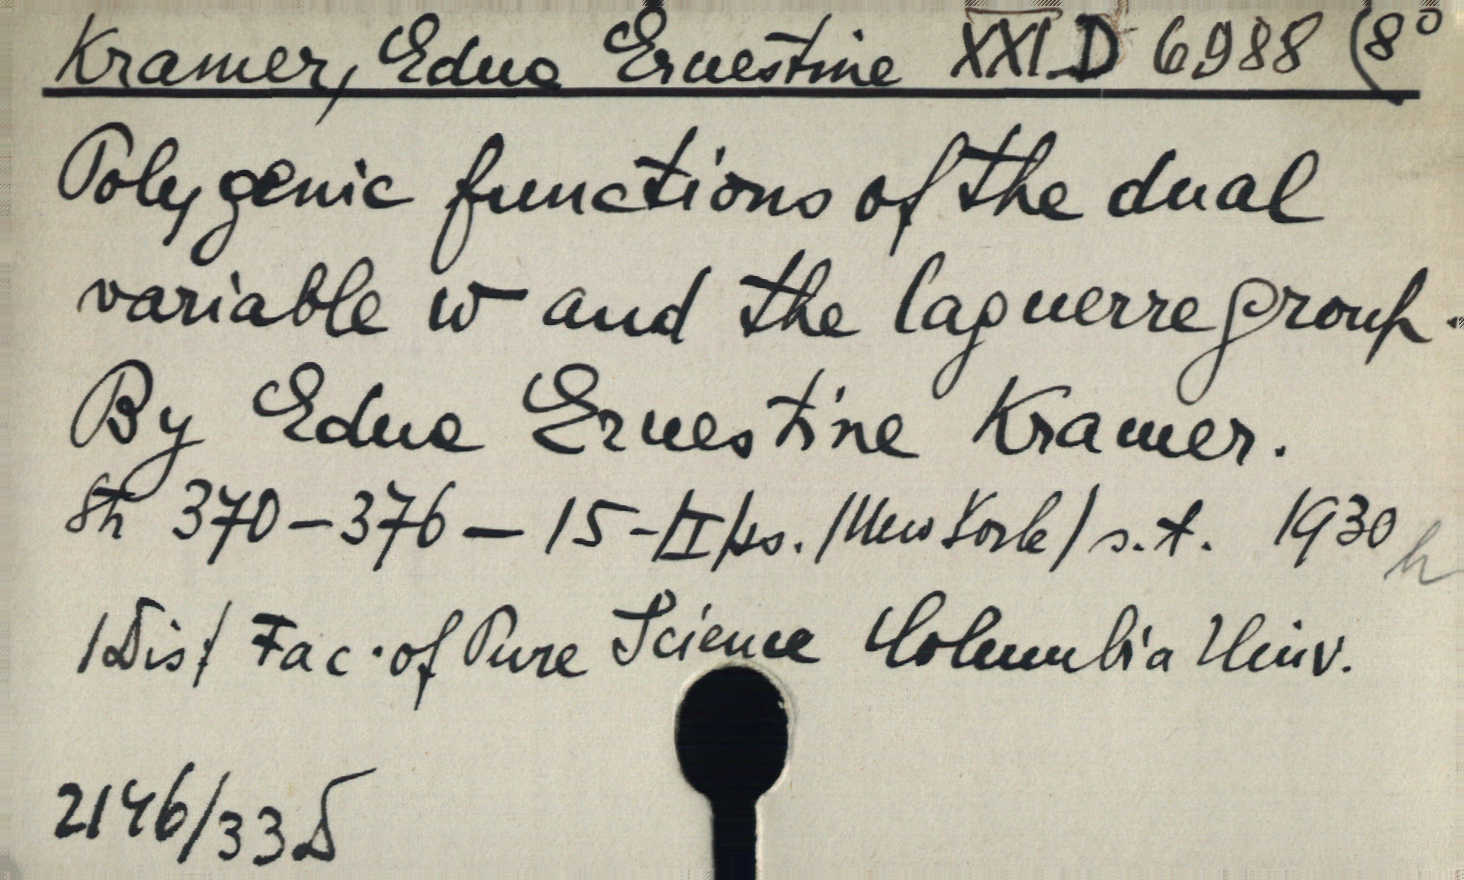 Kramer, Edna Ernestine XXI.D 6988 (8°
Polygenic functions of the dual
variable w and the laguerre group.
By Edna Ernestine Kramer.
8h 370-376-15-II/ks. /New York/ s.t. 1930
/Dis/ Fac. of Pure Science Columbia Univ.
2146/33 D